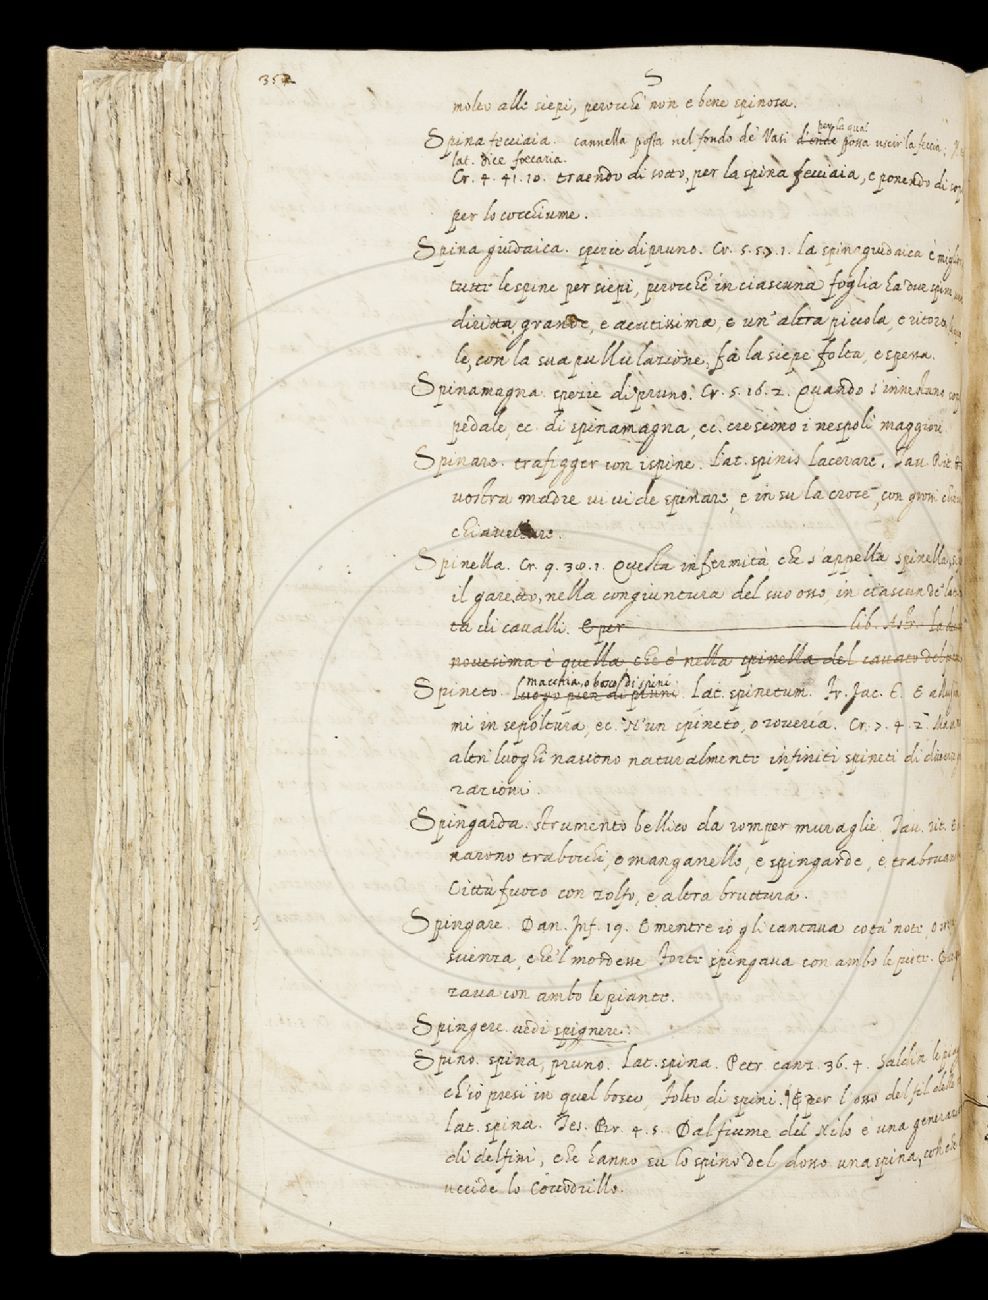 352
S
molto alle siepi, perocche non e bene spinosa.
Spina fecciaia. cannella posta nel fondo de' Vasi donde per la qual possa uscir la feccia;
lat. dice feccaria.
Cr. 4. 41. 10. traendo di sotto, per la spina fecciaia, e ponendo di
per lo cocchiume.
Spina giudaica. spezie di pruno. Cr. 5. 57. 1. la spina giudaica è
tutte le spine per siepi, perocchè in ciascuna foglia ha due spine
diritta, grande, e acutissima, e un' altra piccola, e
le, con la sua pullulazione, fà la siepe folta, e spessa.
Spinamagna. spezie di pruno. Cr. 5. 16. 2. Quando s'innestano
pedale, ec. di spinamagna, ec. crescono i nespoli maggiori
Spinare. trafigger con ispine. Lat. spinis lacerare. Tav. Rit.
vostra madre vi vide spinare, e in su la croce, con grossi
chiavellare.
Spinella. Cr. 9. 38. 1. Questa infermità, che s'appella spinella,
il garetto, nella congiuntura del suo osso, in ciascun de' lati
ta di cavalli. E per lib. Astr. la
novesima è quella che è nella spinella del cavato del
Spineto. luogo pien di pruni macchia, o bosco di spini. Lat. spinetum. Fr. Jac. T. E
mi in sepoltura, ec. 'N un spineto, o roveria. Cr. 7. 4. 2.
altri luoghi nascono naturalmente infiniti spineti di
razioni.
Spingarda. strumento bellico da romper muraglie. Tav. rit.
narono trabocchi, e manganelle, e spingarde, e
Città fuoco con zolfo, e altra bruttura.
Spingare. Dan. Inf. 19. E mentre io gli cantava cota' note, o
scienza, che'l mordesse Forte spingava con ambo le piote.
zava con ambo le piante.
Spingere. vedi spignere.
Spino. spina, pruno. Lat. spina. Petr. canz. 36. 4.
ch'io presi in quel bosco, folto di spini. E per l'osso del fil delle
Lat. spina. Tes. Br. 4. 5. Dal fiume del Nilo è una
di delfini, che hanno su lo spino del dosso una spina,
uccide lo Coccodrillo.